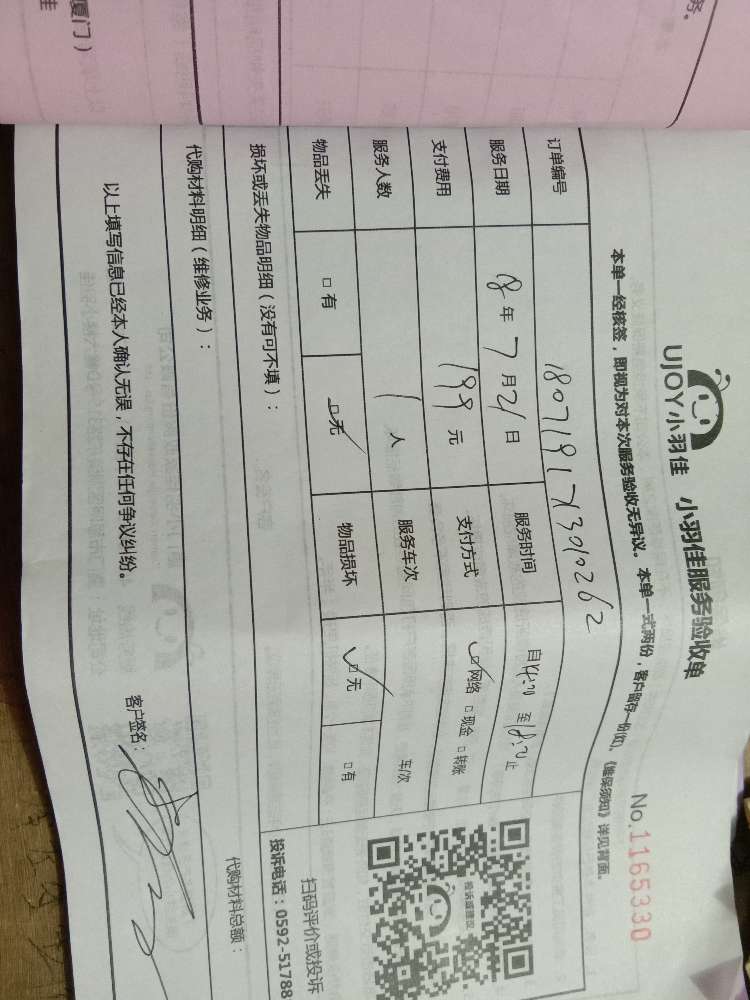 务。
厦门）
佳
UJOY小羽佳 小羽佳服务验收单
No.1165330
本单一经核签，即视为对本次服务验收无异议。本单一式两份，客户留存一份(次)、《维保须知》详见背面。
订单编号 180719171301026２
服务日期 18年 7月21日 服务时间 自14:20 至18:20止
支付费用 199元 支付方式 ☑网络 □现金 □转账
服务人数 1人 服务车次 车/次
物品丢失 □有 ☑无 物品损坏 ☑无 □有
扫码评价或投诉
投诉电话：0592-51788
投诉或建议
损坏或丢失物品明细（没有可不填）：
代购材料明细（维修业务）： 代购材料总额：
以上填写信息已经本人确认无误，不存在任何争议纠纷。 客户签名：